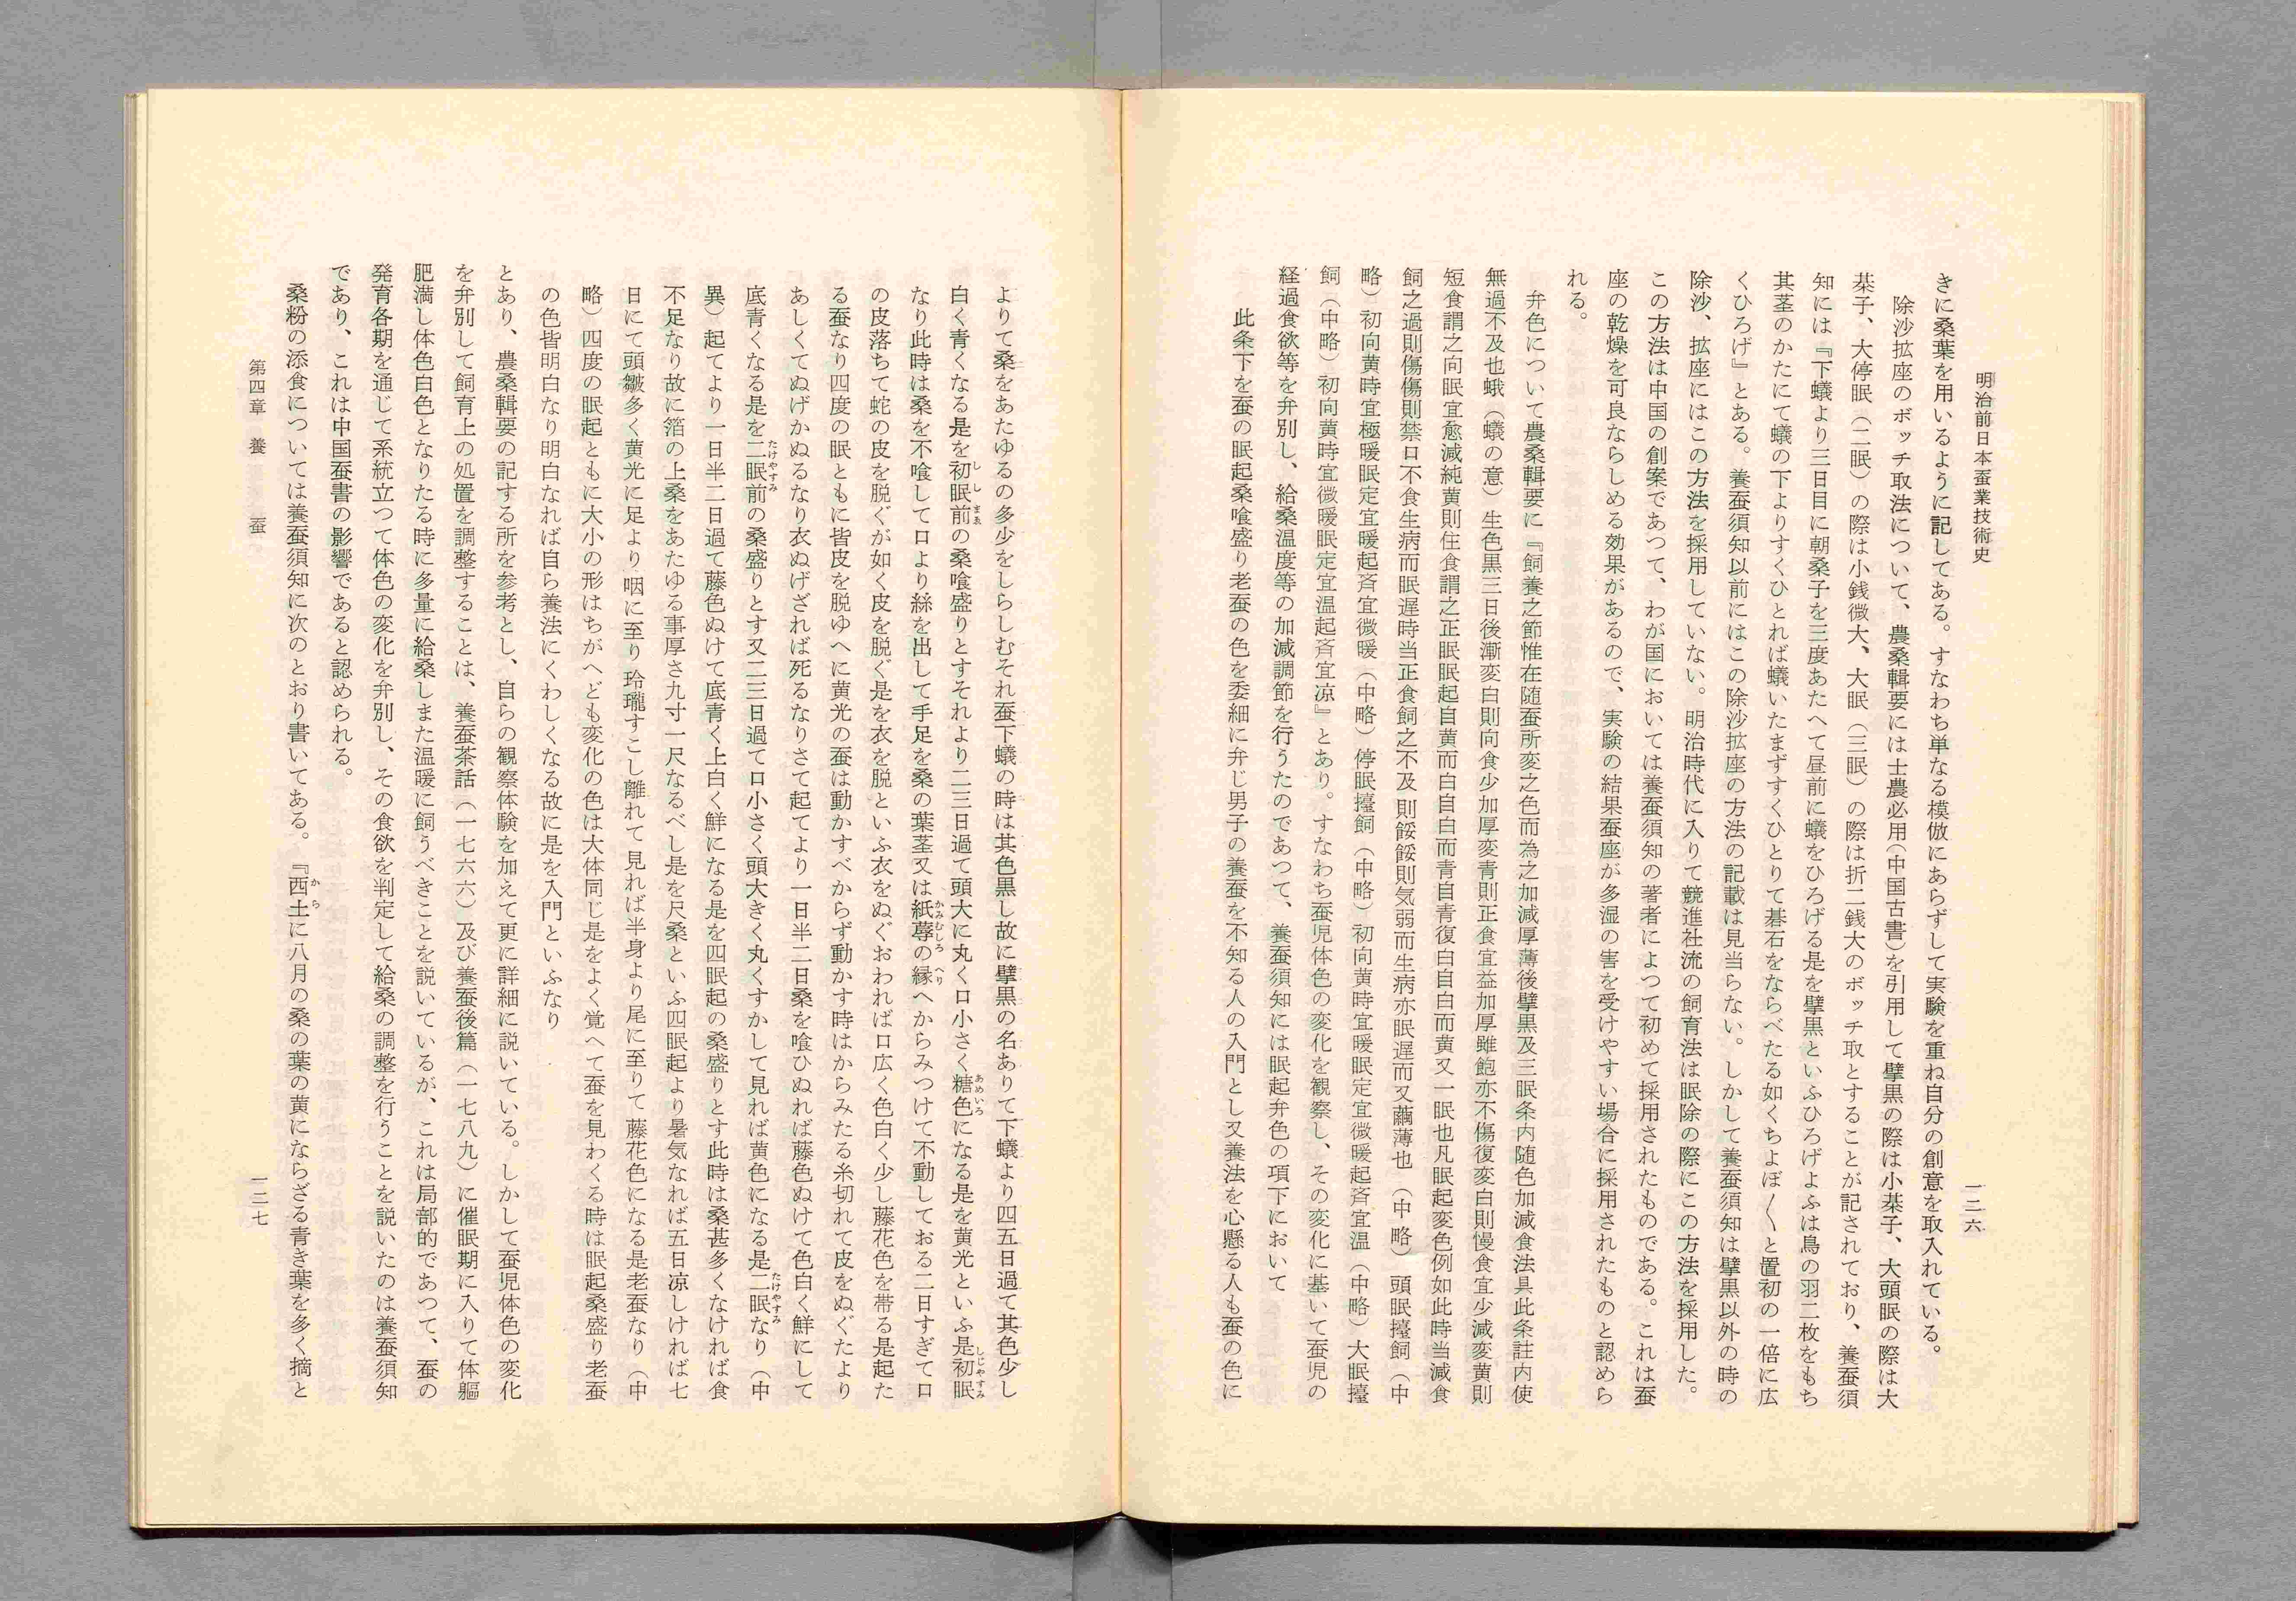 明治前日本蚕業技術史
一二六
きに桑葉を用いるように記してある。すなわち単なる模倣にあらずして実験を重ね自分の創意を取入れている。
除沙拡座のボッチ取法について、農桑輯要には士農必用(中国古書)を引用して擘黒の際は小棊子、大頭眠の際は大
棊子、大停眠(二眠)の際は小銭微大、大眠(三眠)の際は折二銭大のボッチ取とすることが記されており、養蚕須
知には『下蟻より三日目に朝桑子を三度あたへて昼前に蟻をひろげる是を擘黒といふひろげよふは鳥の羽二枚をもち
其茎のかたにて蟻の下よりすくひとれば蟻いたまずすくひとりて碁石をならべたる如くちよぼ〱と置初の一倍に広
くひろげ』とある。養蚕須知以前にはこの除沙拡座の方法の記載は見当らない。しかして養蚕須知は擘黒以外の時の
除沙、拡座にはこの方法を採用していない。明治時代に入りて競進社流の飼育法は眠除の際にこの方法を採用した。
この方法は中国の創案であつて、わが国においては養蚕須知の著者によつて初めて採用されたものである。これは蚕
座の乾燥を可良ならしめる効果があるので、実験の結果蚕座が多湿の害を受けやすい場合に採用されたものと認めら
れる。
弁色について農桑輯要に『飼養之節惟在随蚕所変之色而為之加減厚薄後擘黒及三眠条内随色加減食法具此条註内使
無過不及也蛾(蟻の意)生色黒三日後漸変白則向食少加厚変青則正食宜益加厚雖飽亦不傷復変白則慢食宜少減変黄則
短食謂之向眠宜愈減純黄則住食謂之正眠眠起自黄而白自白而青自青復白自白而黄又一眠也凡眠起変色例如此時当減食
飼之過則傷傷則禁口不食生病而眠遅時当正食飼之不及則餒餒則気弱而生病亦眠遅而又繭薄也(中略)頭眠擡飼(中
略)初向黄時宜極暖眠定宜暖起斉宜微暖(中略)停眠擡飼(中略)初向黄時宜暖眠定宜微暖起斉宜温(中略)大眠擡
飼(中略)初向黄時宜微暖眠定宜温起斉宜凉』とあり。すなわち蚕児体色の変化を観察し、その変化に基いて蚕児の
経過食欲等を弁別し、給桑温度等の加減調節を行うたのであつて、養蚕須知には眠起弁色の項下において
此条下を蚕の眠起桑喰盛り老蚕の色を委細に弁じ男子の養蚕を不知る人の入門とし又養法を心懸る人も蚕の色に
よりて桑をあたゆるの多少をしらしむそれ蚕下蟻の時は其色黒し故に擘黒の名ありて下蟻より四五日過て其色少し
白く青くなる是を初眠前の桑喰盛りとすそれより二三日過て頭大に丸く口小さく糖色になる是を黄光といふ是初眠
なり此時は桑を不喰して口より絲を出して手足を桑の葉茎又は紙蓐の縁へからみつけて不動しておる二日すぎて口
の皮落ちて蛇の皮を脱ぐが如く皮を脱ぐ是を衣を脱といふ衣をぬぐおわれば口広く色白く少し藤花色を帯る是起た
る蚕なり四度の眠ともに皆皮を脱ゆへに黄光の蚕は動かすべからず動かす時はからみたる糸切れて皮をぬぐたより
あしくてぬげかぬるなり衣ぬげざれば死るなりさて起てより一日半二日桑を喰ひぬれば藤色ぬけて色白く鮮にして
底青くなる是を二眠前の桑盛りとす又二三日過て口小さく頭大きく丸くすかして見れば黄色になる是二眠なり(中
異)起てより一日半二日過て藤色ぬけて底青く上白く鮮になる是を四眠起の桑盛りとす此時は桑甚多くなければ食
不足なり故に箔の上桑をあたゆる事厚さ九寸一尺なるべし是を尺桑といふ四眠起より暑気なれば五日凉しければ七
日にて頭皺多く黄光に足より咽に至り玲瓏すこし離れて見れば半身より尾に至りて藤花色になる是老蚕なり(中
略)四度の眠起ともに大小の形はちがへども変化の色は大体同じ是をよく覚へて蚕を見わくる時は眠起桑盛り老蚕
の色皆明白なり明白なれば自ら養法にくわしくなる故に是を入門といふなり
とあり、農桑輯要の記する所を参考とし、自らの観察体験を加えて更に詳細に説いている。しかして蚕児体色の変化
を弁別して飼育上の処置を調整することは、養蚕茶話(一七六六)及び養蚕後篇(一七八九)に催眠期に入りて体軀
肥満し体色白色となりたる時に多量に給桑しまた温暖に飼うべきことを説いているが、これは局部的であつて、蚕の
発育各期を通じて系統立つて体色の変化を弁別し、その食欲を判定して給桑の調整を行うことを説いたのは養蚕須知
であり、これは中国蚕書の影響であると認められる。
桑粉の添食については養蚕須知に次のとおり書いてある。『西土に八月の桑の葉の黄にならざる青き葉を多く摘と
第四章 養 蚕
一二七